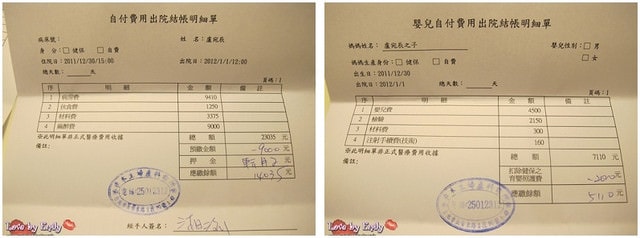 自付費用出院結帳明細單
病床號：
姓名：盧宛辰
身分：□健保 □自費
住院日：2011/12/30/15:00
出院日：2012/1/1/12:00
總天數：___天
頁碼：1
序 明細 金額 備註
1 病房費 9410
2 伙食費 1250
3 材料費 3375
4 麻醉費 9000
※此明細單非正式醫療費用收據
總額 23035 元
備註：
預繳金額 -9000 元
押金 元
總繳餘額 14035 元
經手人簽名：
Love by Emily
嬰兒自付費用出院結帳明細單
媽媽姓名：盧宛辰之子
嬰兒性別：□男
□女
媽媽生產身份：□健保 □自費
出生日：2011/12/30
出院日：2012/1/1
總天數：___天
頁碼：1
序 明細 金額 備註
1 嬰兒費 4500
2 檢驗 2150
3 材料費 300
4 注射手續費(技術) 160
※此明細單非正式醫療費用收據
總額 7110 元
備註：
扣除健保之
育嬰照護費 -2000 元
總繳餘額 5110 元
Love by Emily